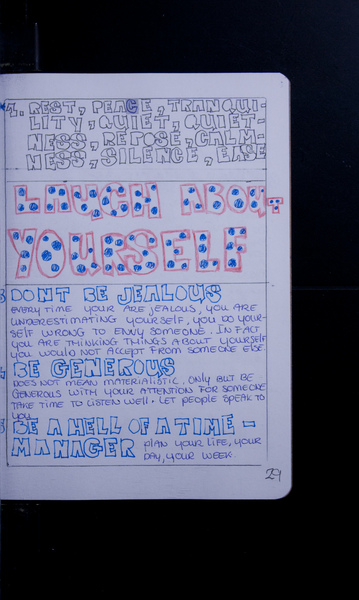 4. REST, PEACE, TRANQUI-
LITY, QUIET, QUIET-
NESS, REPOSE, CALM-
NESS, SILENCE, EASE
LAUGH ABOUT
YOURSELF
3 DONT BE JEALOUS
EVERY TIME YOUR ARE JEALOUS, YOU ARE
UNDERESTIMATING YOURSELF, YOU DO YOUR-
SELF WRONG TO ENVY SOMEONE. IN FACT
YOU ARE THINKING THINGS ABOUT YOURSELF
YOU WOULD NOT ACCEPT FROM SOMEONE ELSE.
BE GENEROUS
DOES NOT MEAN MATERIALISTIC. ONLY BUT BE
GENEROUS WITH YOUR ATTENTION FOR SOMEONE
TAKE TIME TO LISTEN WELL. LET PEOPLE SPEAK TO
YOU
BE A HELL OF A TIME-
MANAGER PLAN YOUR LIFE, YOUR
DAY, YOUR WEEK.
29